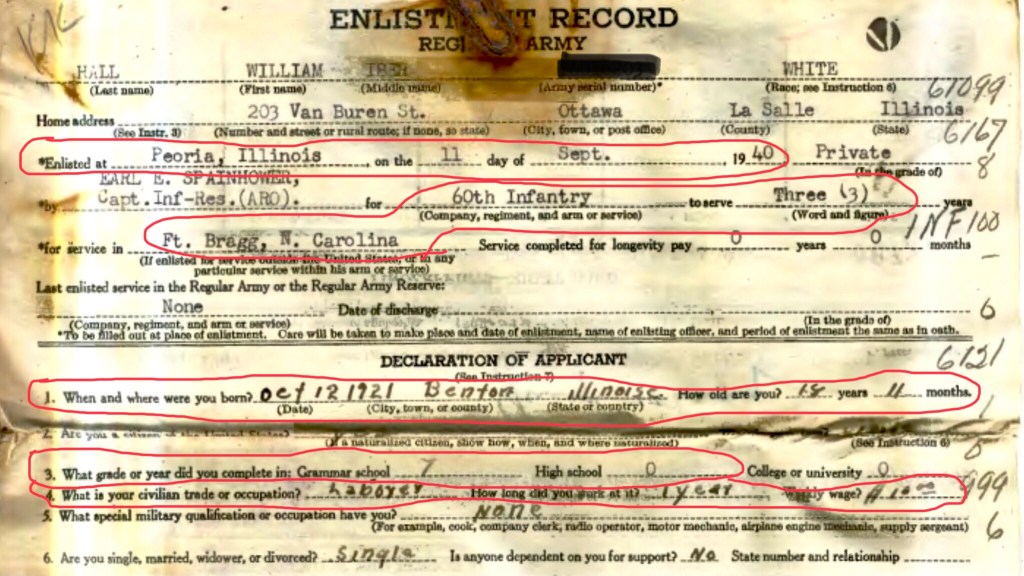 ENLISTMENT RECORD
REGULAR ARMY
HALL WILLIAM IBER WHITE
(Last name) (First name) (Middle name) (Army serial number)* (Race; see Instruction 6)
61099
Home address 203 Van Buren St. Ottawa La Salle Illinois
(See Instr. 3) (Number and street or rural route; if none, so state) (City, town, or post office) (County) (State)
6167
*Enlisted at Peoria, Illinois, on the 11 day of Sept., 1940 Private
(In the grade of) 8
EARL E. SPAINHOWER,
*by Capt.Inf-Res.(ARO). for 60th Infantry to serve Three (3) years
(Company, regiment, and arm or service) (Word and figure)
INF100
*for service in Ft. Bragg, N. Carolina Service completed for longevity pay 0 years 0 months
(If enlisted for service outside the United States, or in any
particular service within his arm or service)
Last enlisted service in the Regular Army or the Regular Army Reserve:
None Date of discharge
6
(Company, regiment, and arm or service) (In the grade of)
*To be filled out at place of enlistment. Care will be taken to make place and date of enlistment, name of enlisting officer, and period of enlistment the same as in oath.
DECLARATION OF APPLICANT
(See Instruction 7)
6121
1. When and where were you born? Oct 12 1921 Benton Illinoise. How old are you? 18 years 11 months.
(Date) (City, town, or county) (State or country)
1
2. Are you a citizen of the United States?
(If a naturalized citizen, show how, when, and where naturalized) (See Instruction 6)
3. What grade or year did you complete in: Grammar school 7 High school 0 College or university 0
999
4. What is your civilian trade or occupation? Laborer How long did you work at it? 1 year Weekly wage?
5. What special military qualification or occupation have you? None
(For example, cook, company clerk, radio operator, motor mechanic, airplane engine mechanic, supply sergeant)
6
6. Are you single, married, widower, or divorced? Single Is anyone dependent on you for support? No State number and relationship